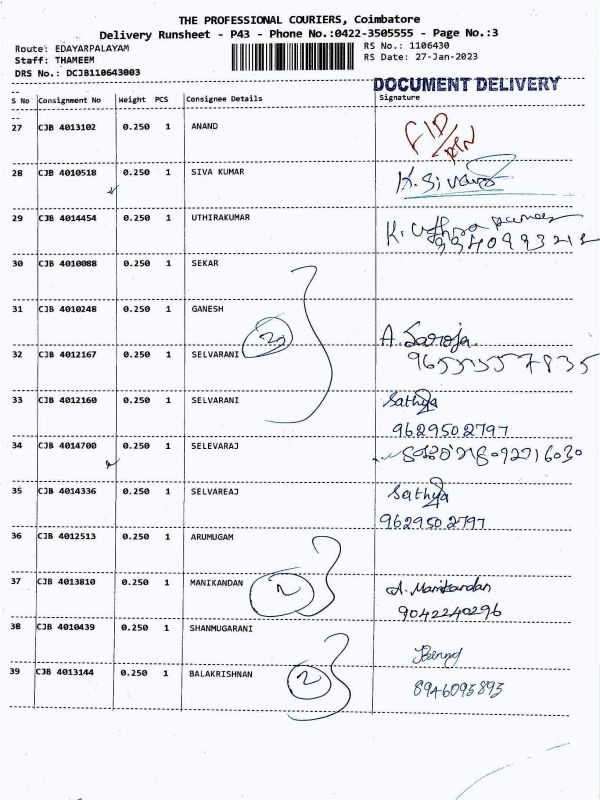 THE PROFESSIONAL COURIERS, Coimbatore
Delivery Runsheet - P43 - Phone No.:0422-3505555 - Page No.:3
Route: EDAYARPALAYAM
RS No.: 1106430
Staff: THAMEEM
RS Date: 27-Jan-2023
DRS No.: DCJB110643003
DOCUMENT DELIVERY
S No Consignment No Weight PCS Consignee Details Signature
27 CJB 4013102 0.250 1 ANAND
28 CJB 4010518 0.250 1 SIVA KUMAR K. Siva
29 CJB 4014454 0.250 1 UTHIRAKUMAR K.
30 CJB 4010088 0.250 1 SEKAR
31 CJB 4010248 0.250 1 GANESH
A. Saroja
32 CJB 4012167 0.250 1 SELVARANI
33 CJB 4012160 0.250 1 SELVARANI Sathya
9629502797
34 CJB 4014700 0.250 1 SELEVARAJ
35 CJB 4014336 0.250 1 SELVAREAJ Sathya
9629502797
36 CJB 4012513 0.250 1 ARUMUGAM
37 CJB 4013810 0.250 1 MANIKANDAN 2 A. Manikandan
9042240296
38 CJB 4010439 0.250 1 SHANMUGARANI
39 CJB 4013144 0.250 1 BALAKRISHNAN 2
8946093893